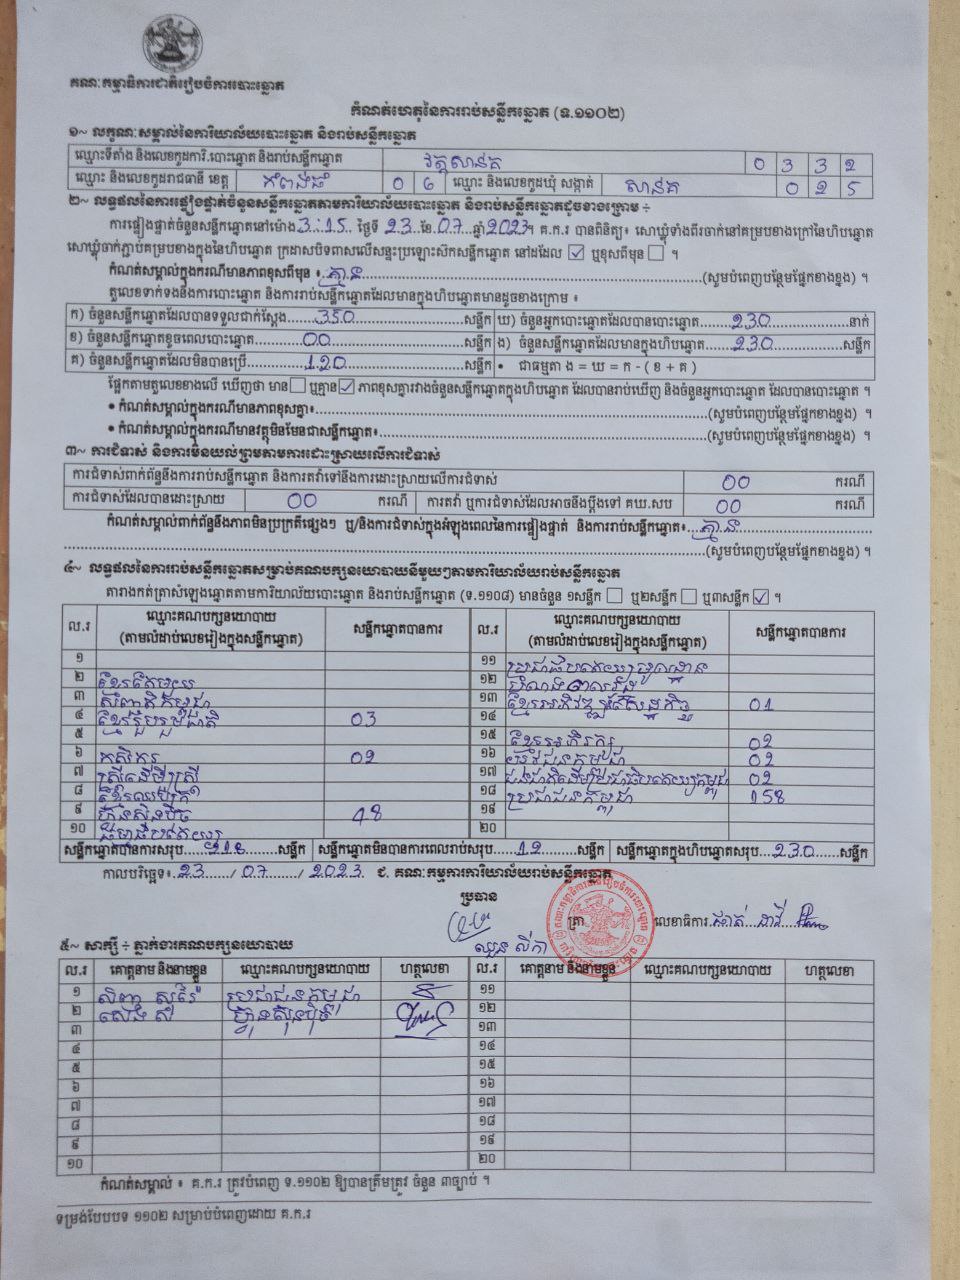 គណៈកម្មាធិការជាតិរៀបចំការបោះឆ្នោត
កំណត់ហេតុនៃការរាប់សន្លឹកឆ្នោត (ទ.១១០២)
១~ លក្ខណៈសម្គាល់នៃការិយាល័យបោះឆ្នោត និងរាប់សន្លឹកឆ្នោត
ឈ្មោះទីតាំង និងលេខកូដការិ.បោះឆ្នោត និងរាប់សន្លឹកឆ្នោត វត្តសាន់គ 0 3 3 2
ឈ្មោះ និងលេខកូដរាជធានី ខេត្ត កំពង់ធំ 0 6 ឈ្មោះ និងលេខកូដឃុំ សង្កាត់ សាន់គ 0 2 5
២~ លទ្ធផលនៃការផ្ទៀងផ្ទាត់ចំនួនសន្លឹកឆ្នោតតាមការិយាល័យបោះឆ្នោត និងរាប់សន្លឹកឆ្នោតដូចខាងក្រោម ÷
ការផ្ទៀងផ្ទាត់ចំនួនសន្លឹកឆ្នោតនៅម៉ោង 3:15 ថ្ងៃទី 23 ខែ 07 ឆ្នាំ 2023។ គ.ក.រ បានពិនិត្យ៖ សោឃ្លុំទាំងពីរចាក់នៅគម្របខាងក្រៅនៃហិបឆ្នោត
សោឃ្លុំចាក់ភ្ជាប់គម្របខាងក្នុងនៃហិបឆ្នោត ក្រដាសបិទពាសលើសន្ទះប្រឡោះសិកសន្លឹកឆ្នោត នៅដដែល ☑ ឬខុសពីមុន ☐ ។
កំណត់សម្គាល់ក្នុងករណីមានភាពខុសពីមុន ៖ គ្មាន (សូមបំពេញបន្ថែមផ្នែកខាងខ្នង) ។
តួលេខទាក់ទងនឹងការបោះឆ្នោត និងការរាប់សន្លឹកឆ្នោតដែលមានក្នុងហិបឆ្នោតមានដូចខាងក្រោម ៖
ក) ចំនួនសន្លឹកឆ្នោតដែលបានទទួលជាក់ស្តែង 350 សន្លឹក ឃ) ចំនួនអ្នកបោះឆ្នោតដែលបានបោះឆ្នោត 230 នាក់
ខ) ចំនួនសន្លឹកឆ្នោតខូចពេលបោះឆ្នោត 00 សន្លឹក ង) ចំនួនសន្លឹកឆ្នោតដែលមានក្នុងហិបឆ្នោត 230 សន្លឹក
គ) ចំនួនសន្លឹកឆ្នោតដែលមិនបានប្រើ 120 សន្លឹក • ជាធម្មតា ង = ឃ = ក - ( ខ + គ )
ផ្អែកតាមតួលេខខាងលើ ឃើញថា មាន ☐ ឬគ្មាន ☑ ភាពខុសគ្នារវាងចំនួនសន្លឹកឆ្នោតក្នុងហិបឆ្នោត ដែលបានរាប់ឃើញ និងចំនួនអ្នកបោះឆ្នោត ដែលបានបោះឆ្នោត ។
• កំណត់សម្គាល់ក្នុងករណីមានភាពខុសគ្នា៖ (សូមបំពេញបន្ថែមផ្នែកខាងខ្នង) ។
• កំណត់សម្គាល់ក្នុងករណីមានវត្ថុមិនមែនជាសន្លឹកឆ្នោត៖ (សូមបំពេញបន្ថែមផ្នែកខាងខ្នង) ។
៣~ ការជំទាស់ និងការមិនយល់ព្រមតាមការដោះស្រាយលើការជំទាស់
ការជំទាស់ពាក់ព័ន្ធនឹងការរាប់សន្លឹកឆ្នោត និងការតវ៉ាទៅនឹងការដោះស្រាយលើការជំទាស់ 00 ករណី
ការជំទាស់ដែលបានដោះស្រាយ 00 ករណី ការតវ៉ា ឬការជំទាស់ដែលអាចនឹងប្តឹងទៅ គឃ.សប 00 ករណី
កំណត់សម្គាល់ពាក់ព័ន្ធនឹងភាពមិនប្រក្រតីផ្សេងៗ ឬ/និងការជំទាស់ក្នុងអំឡុងពេលនៃការផ្ទៀងផ្ទាត់ និងការរាប់សន្លឹកឆ្នោត៖ គ្មាន
(សូមបំពេញបន្ថែមផ្នែកខាងខ្នង) ។
៤~ លទ្ធផលនៃការរាប់សន្លឹកឆ្នោតសម្រាប់គណបក្សនយោបាយនីមួយៗតាមការិយាល័យរាប់សន្លឹកឆ្នោត
តារាងកត់ត្រាសំឡេងឆ្នោតតាមការិយាល័យបោះឆ្នោត និងរាប់សន្លឹកឆ្នោត (ទ.១១០៨) មានចំនួន ១សន្លឹក ☐ ឬ២សន្លឹក ☐ ឬ៣សន្លឹក ☑ ។
ល.រ ឈ្មោះគណបក្សនយោបាយ (តាមលំដាប់លេខរៀងក្នុងសន្លឹកឆ្នោត) សន្លឹកឆ្នោតបានការ ល.រ ឈ្មោះគណបក្សនយោបាយ (តាមលំដាប់លេខរៀងក្នុងសន្លឹកឆ្នោត) សន្លឹកឆ្នោតបានការ
១ ១១ ប្រជាធិបតេយ្យមូលដ្ឋាន
២ ខ្មែរតែមួយ ១២
៣ សញ្ជាតិកម្ពុជា ១៣ ខ្មែរអភិវឌ្ឍន៍សេដ្ឋកិច្ច 01
៤ ខ្មែររួបរួមជាតិ 03 ១៤
៥ ១៥ ខ្មែរអភិរក្ស 02
៦ កសិករ 02 ១៦ យុវជនកម្ពុជា 02
៧ ស្ត្រីដើម្បីស្ត្រី ១៧ ជនជាតិដើមប្រជាធិបតេយ្យកម្ពុជា 02
៨ ១៨ ប្រជាជនកម្ពុជា 158
៩ ហ្វ៊ុនស៊ិនប៉ិច 48 ១៩
១០ ធម្មាធិបតេយ្យ ២០
សន្លឹកឆ្នោតបានការសរុប 218 សន្លឹក សន្លឹកឆ្នោតមិនបានការពេលរាប់សរុប 12 សន្លឹក សន្លឹកឆ្នោតក្នុងហិបឆ្នោតសរុប 230 សន្លឹក
កាលបរិច្ឆេទ៖ 23 / 07 / 2023 ជ. គណៈកម្មការការិយាល័យរាប់សន្លឹកឆ្នោត
ប្រធាន
ត្រា លេខាធិការ
៥~ សាក្សី ÷ ភ្នាក់ងារគណបក្សនយោបាយ
ល.រ គោត្តនាម និងនាមខ្លួន ឈ្មោះគណបក្សនយោបាយ ហត្ថលេខា ល.រ គោត្តនាម និងនាមខ្លួន ឈ្មោះគណបក្សនយោបាយ ហត្ថលេខា
១ ប្រជាជនកម្ពុជា ១១
២ ហ្វ៊ុនស៊ិនប៉ិច ១២
៣ ១៣
៤ ១៤
៥ ១៥
៦ ១៦
៧ ១៧
៨ ១៨
៩ ១៩
១០ ២០
កំណត់សម្គាល់ ៖ គ.ក.រ ត្រូវបំពេញ ទ.១១០២ ឱ្យបានត្រឹមត្រូវ ចំនួន ៣ច្បាប់ ។
ទម្រង់បែបបទ ១១០២ សម្រាប់បំពេញដោយ គ.ក.រ